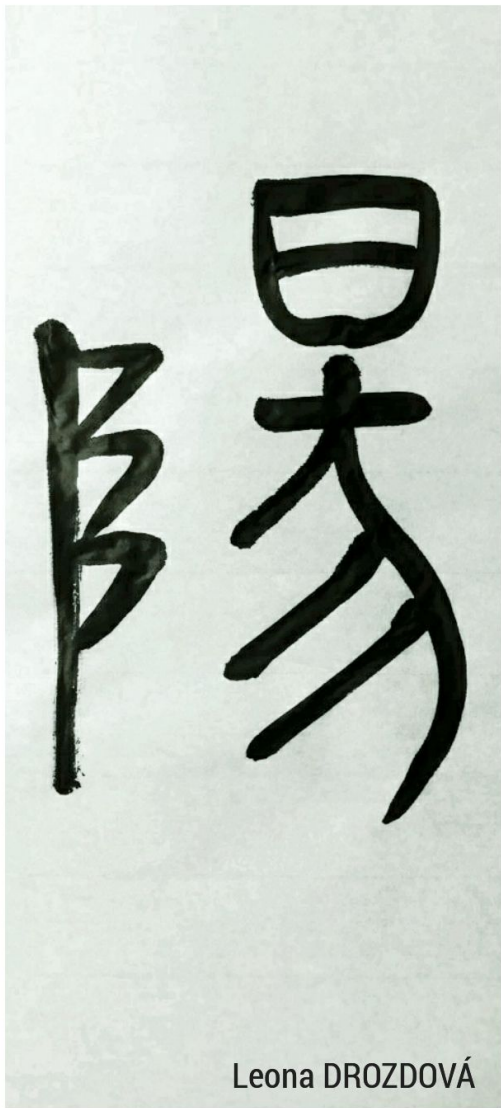 陽
Leona DROZDOVÁ